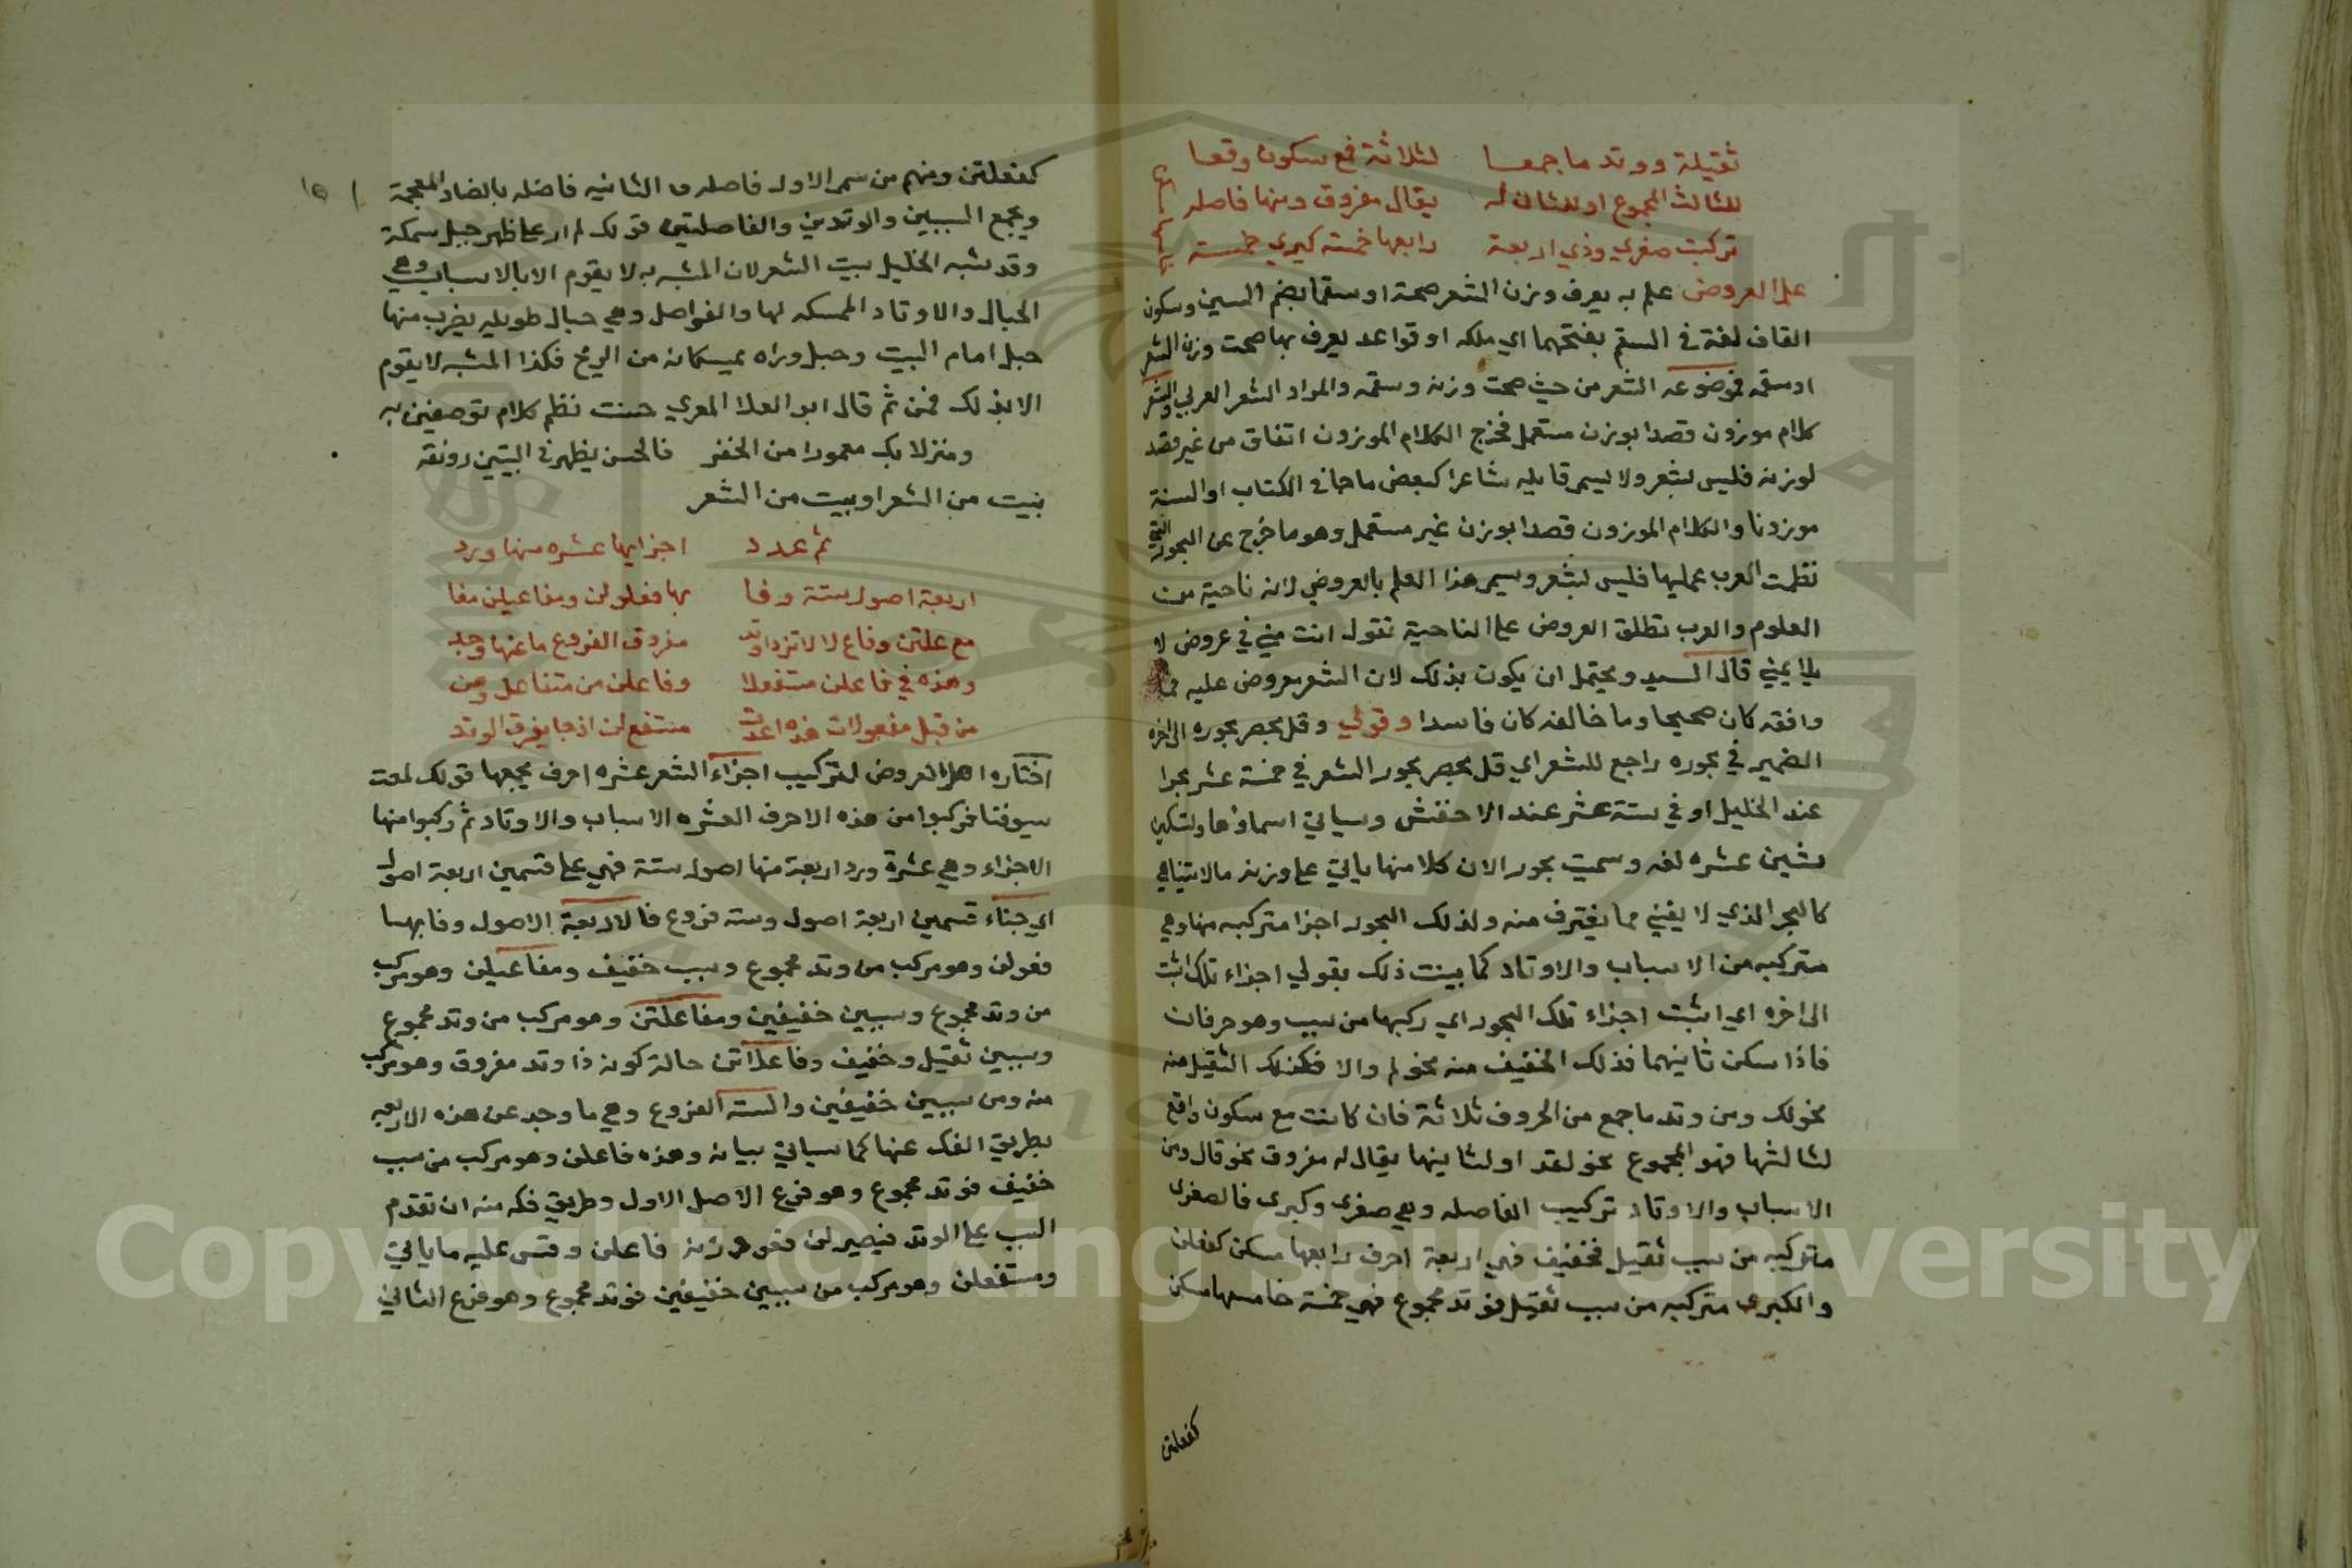 ثقيلة ووتد ما جمعا لثلاثة مع سكون وقعا
للثالث المجموع او للثان له يقال مفروق ومنها فاصله
تركبت صغري وذي اربعة رابعها خمسة كبري
علم العروض علم به يعرف وزن الشعر صحة او سقما بضم السين وسكون
القاف لغة في السقم بفتحهما اي ملكه او قواعد يعرف بها صحت وزن الشعر
او سقمه فموضوعه الشعر من حيث صحت وزنه وسقمه والمراد الشعر العربي والشعر
كلام موزون قصدا بوزن مستعمل فخرج الكلام الموزون اتفاق من غير قصد
لوزنه فليس بشعر ولا يسمى قايله شاعرا كبعض ما جا في الكتاب او السنة
موزونا والكلام الموزون قصدا بوزن غير مستعمل وهو ما خرج عن البحور التي
نظمت العرب عليها فليس بشعر ويسمى هذا العلم بالعروض لانه ناحية من
العلوم والعرب تطلق العروض على الناحية تقول انت مني في عروض لا
يلايمني قال السيد ويحتمل ان يكون بذلك لان الشعر معروض عليه فما
وافقه كان صحيحا وما خالفه كان فاسدا وقولي وقل بحصر بحوره الى اخره
الضمير في بحوره راجع للشعر اي قل بحصر بحور الشعر في خمسة عشر بحرا
عند الخليل او في ستة عشر عند الاخفش وسياتي اسماوها وتسكين
شين عشره لغه وسميت بحور الان كلا منها ياتي على وزنه ما لا يتناهي
كالبحر الذي لا يفني مما يغترف منه ولذلك البحور اجزا متركبه منها وهي
متركبه من الاسباب والاوتاد كما بينت ذلك بقولي اجزاء تلك اثبت
الى اخره اي اثبت اجزاء تلك البحور اي ركبها من سبب وهو حرفان
فاذا سكن ثانيهما فذلك الخفيف منه نحو لم والا فكذلك الثقيل منه
نحو لك ومن وتد ما جمع من الحروف ثلاثة فان كانت مع سكون واقع
لثالثها فهو المجموع نحو لقد او لثانيها يقال له مفروق نحو قال ومن
الاسباب والاوتاد تركيب الفاصله وهي صغرى وكبرى فالصغرى
متركبه من سبب ثقيل فخفيف فهي اربعة احرف رابعها مسكن كفعلن
والكبرى متركبه من سبب ثقيل فوتد مجموع فهي خمسة خامسها مسكن
كفعلتن
كفعلتن ومنهم من سمى الاولى فاصله و الثانيه فاضله بالضاد المعجمة
ويجمع السببين والوتدين والفاصلتين قولك لم ار على ظهر جبل سمكة
وقد شبه الخليل بيت الشعر لان المشبه به لا يقوم الا بالاسباب وهي
الحبال والاوتاد الممسكه لها والفواصل وهي حبال طويله يضرب منها
حبل امام البيت وحبل وراه يمسكانه من الريح فكذا المشبه لا يقوم
الا بذلك فمن ثم قال ابو العلا المعري حسنت نظم كلام توصفين به
ومنزلا بك معمورا من الخفر فالحسن يظهر في البيتين رونقه
بيت من الشعر او بيت من الشعر
ثم عدد اجزايها عشره منها ورد
اربعة اصول ستة وفا بها فعلولن ومفاعيلن مفا
مع علتن وفاع لا لا تزد وتد مفروق الفروع ما عنها وجد
وهذه في فاعلن مستفعلا وفاعلن من متفاعل ومن
من قبل مفعولات هذه اعدت مستفع لن اذ جا بفرق الوتد
اختاره اهل العروض لتركيب اجزاء الشعر عشره احرف يجمعها قولك لمعت
سيوفنا فركبوا من هذه الاحرف العشره الاسباب والاوتاد ثم ركبوا منها
الاجزاء وهي عشرة ورد اربعة منها اصول ستة فهي على قسمين اربعة اصول
اي جاء قسمين اربعة اصول وسته فروع فالاربعة الاصول وفا بها
فعولن وهو مركب من وتد مجموع وسبب خفيف ومفاعيلن وهو مركب
من وتد مجموع وسببين خفيفين ومفاعلتن وهو مركب من وتد مجموع
وسببين ثقيل وخفيف وفاعلاتن حالة كونه ذا وتد مفروق وهو مركب
منه ومن سببين خفيفين والسته الفروع وهي ما وجد عن هذه الاربعه
بطريق الفك عنها كما سياتي بيانه وهذه فاعلن وهو مركب من سبب
خفيف فوتد مجموع وهو فرع الاصل الاول وطريق فكه منه ان تقدم
السبب على الوتد فيصير لن فعو وزنه فاعلن وقس عليه ما ياتي
ومستفعلن وهو مركب من سببين خفيفين فوتد مجموع وهو فرع الثاني
Copyright © King Saud University